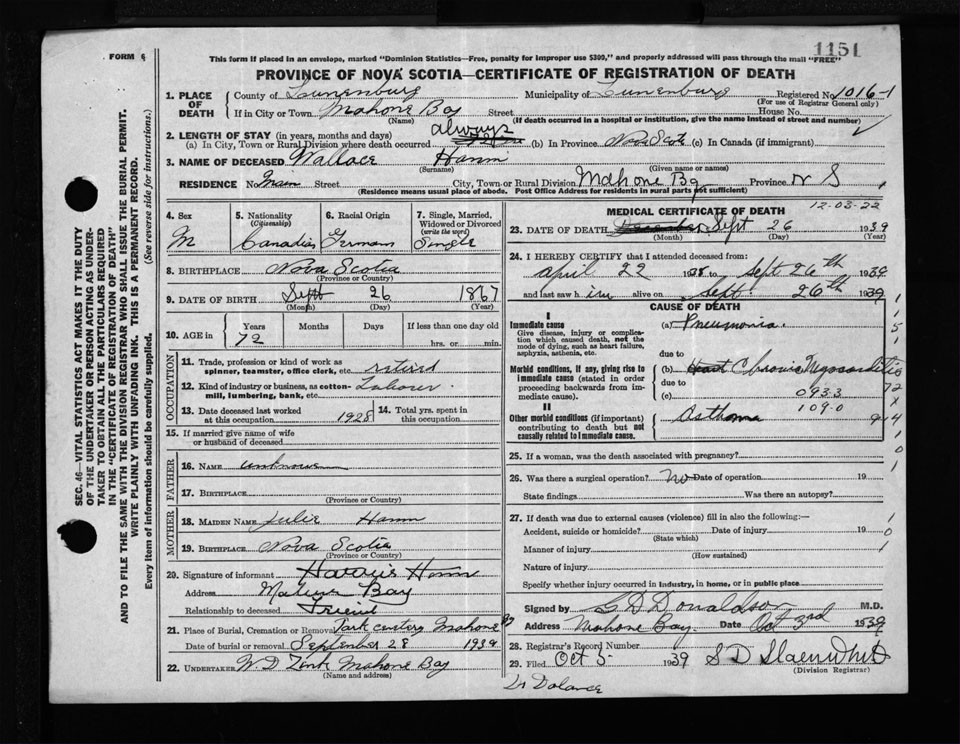 1151
FORM 6
This form if placed in an envelope, marked "Dominion Statistics—Free, penalty for improper use $300," and properly addressed will pass through the mail "FREE"
PROVINCE OF NOVA SCOTIA—CERTIFICATE OF REGISTRATION OF DEATH
1. PLACE OF DEATH County of Lunenburg Municipality of Lunenburg Registered No 1016-1
(For use of Registrar General only)
If in City or Town Mahone Bay Street House No.
(Name) (If death occurred in a hospital or institution, give the name instead of street and number)
2. LENGTH OF STAY (in years, months and days) always
(a) In City, Town or Rural Division where death occurred (b) In Province Nova Scotia (c) In Canada (if immigrant)
3. NAME OF DECEASED Wallace Hamm
(Surname) (Given name or names)
RESIDENCE No Main Street City, Town or Rural Division Mahone Bay Province N S
(Residence means usual place of abode. Post Office Address for residents in rural parts not sufficient)
4. Sex 5. Nationality (Citizenship) 6. Racial Origin 7. Single, Married, Widowed or Divorced (write the word)
M Canadian German Single
8. BIRTHPLACE Nova Scotia
(Province or Country)
9. DATE OF BIRTH Sept 26 1867
(Month) (Day) (Year)
10. AGE in Years Months Days If less than one day old
72 hrs. or min.
OCCUPATION
11. Trade, profession or kind of work as spinner, teamster, office clerk, etc. retired
12. Kind of industry or business, as cotton-mill, lumbering, bank, etc. Laborer
13. Date deceased last worked at this occupation 1928 14. Total yrs. spent in this occupation
15. If married give name of wife or husband of deceased
FATHER
16. NAME unknown
17. BIRTHPLACE
(Province or Country)
MOTHER
18. MAIDEN NAME Julie Hamm
19. BIRTHPLACE Nova Scotia
(Province or Country)
20. Signature of informant Hamm
Address Mahone Bay
Relationship to deceased Friend
21. Place of Burial, Cremation or Removal Park cemetery Mahone Bay
Date of burial or removal September 28 1939
22. UNDERTAKER W D Zink Mahone Bay
(Name and address)
MEDICAL CERTIFICATE OF DEATH 12-03-22
23. DATE OF DEATH December Sept 26 1939
(Month) (Day) (Year)
24. I HEREBY CERTIFY that I attended deceased from:
April 22 1938 to Sept 26th 1939
and last saw him alive on Sept. 26th 1939
CAUSE OF DEATH
I
Immediate cause (a) Pneumonia
Give disease, injury or complication which caused death, not the mode of dying, such as heart failure, asphyxia, asthenia, etc.
due to
Morbid conditions, if any, giving rise to immediate cause (stated in order proceeding backwards from immediate cause).
(b) Heart Chronic Myocarditis
due to
(c) 093.3
109.0
II
Other morbid conditions (if important) contributing to death but not causally related to immediate cause.
Asthma
25. If a woman, was the death associated with pregnancy?
26. Was there a surgical operation? No Date of operation 19
State findings Was there an autopsy?
27. If death was due to external causes (violence) fill in also the following:—
Accident, suicide or homicide? Date of injury 19
(State which)
Manner of injury
(How sustained)
Nature of injury
Specify whether injury occurred in industry, in home, or in public place
Signed by G D Donaldson M.D.
Address Mahone Bay. Date Oct 3rd 1939
28. Registrar's Record Number
29. Filed Oct 5 1939 S D
(Division Registrar)
SEC. 46—VITAL STATISTICS ACT MAKES IT THE DUTY
OF THE UNDERTAKER OR PERSON ACTING AS UNDER-
TAKER TO OBTAIN ALL THE PARTICULARS REQUIRED
IN THE "CERTIFICATE OF REGISTRATION OF DEATH"
AND TO FILE THE SAME WITH THE DIVISION REGISTRAR WHO SHALL ISSUE THE BURIAL PERMIT.
WRITE PLAINLY WITH UNFADING INK. THIS IS A PERMANENT RECORD.
Every item of information should be carefully supplied. (See reverse side for instructions.)